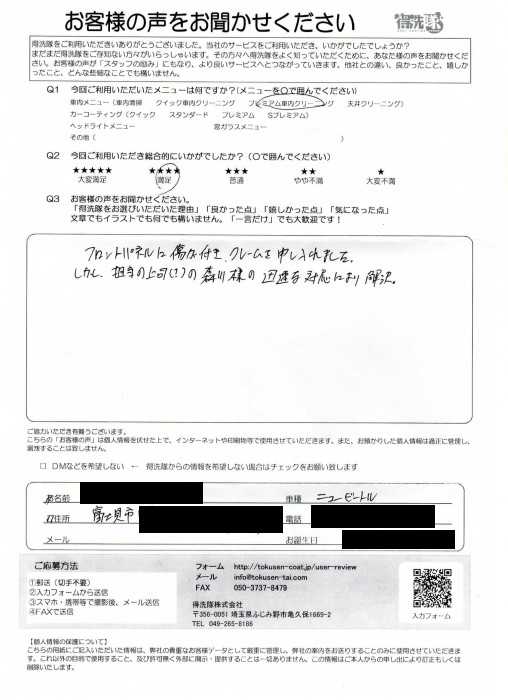 お客様の声をお聞かせください
得洗隊
得洗隊をご利用いただきありがとうございました。当社のサービスをご利用いただき、いかがでしたでしょうか?
まだまだ得洗隊をご存知ない方々がいらっしゃいます。その方々へ得洗隊をよく知っていただくために、あなた様の声をお聞かせください。お客様の声が「スタッフの励み」にもなり、より良いサービスへとつながっていきます。他社との違い、良かったこと、嬉しかったこと、どんな些細なことでも構いません。
Q1 今回ご利用いただいたメニューは何ですか?(メニューを○で囲んでください)
車内メニュー(車内清掃 クイック車内クリーニング プレミアム車内クリーニング 天井クリーニング)
カーコーティング(クイック スタンダード プレミアム Sプレミアム)
ヘッドライトメニュー 窓ガラスメニュー
その他( )
Q2 今回ご利用いただき総合的にいかがでしたか?(○で囲んでください)
★★★★★ ★★★★ ★★★ ★★ ★
大変満足 満足 普通 やや不満 大変不満
Q3 お客様の声をお聞かせください。
「得洗隊をお選びいただいた理由」「良かった点」「嬉しかった点」「気になった点」
文章でもイラストでも何でも構いません。「一言だけ」でも大歓迎です!
フロントパネルに傷が付き、クレームを申し入れました。
しかし、担当の上司(?)の森川様の迅速な対応により解決。
ご協力いただき有難うございます。
こちらの「お客様の声」は個人情報を伏せた上で、インターネットや印刷物等で使用させていただきます。また、お預かりした個人情報は適正に管理し、漏洩することは致しません。
□ DMなどを希望しない ← 得洗隊からの情報を希望しない場合はチェックをお願い致します
お名前 車種 ニュービートル
ご住所 富士見市 電話
メール お誕生日
ご応募方法
①郵送(切手不要)
②入力フォームから送信
③スマホ・携帯等で撮影後、メール送信
④FAXで送信
フォーム http://tokusen-coat.jp/user-review
メール info@tokusen-tai.com
FAX 050-3737-8479
得洗隊株式会社
〒356-0051 埼玉県ふじみ野市亀久保1665-2
TEL 049-265-8186
入力フォーム
【個人情報の保護について】
こちらの用紙にご記入いただいた情報は、弊社の貴重なお客様データとして厳重に管理し、弊社の案内をお送りすることのみに使用させていただきます。これ以外の目的で使用すること、及び許可無く外部に開示・提供することは一切ありません。この情報はご本人からの申し出により訂正もしくは削除いたします。